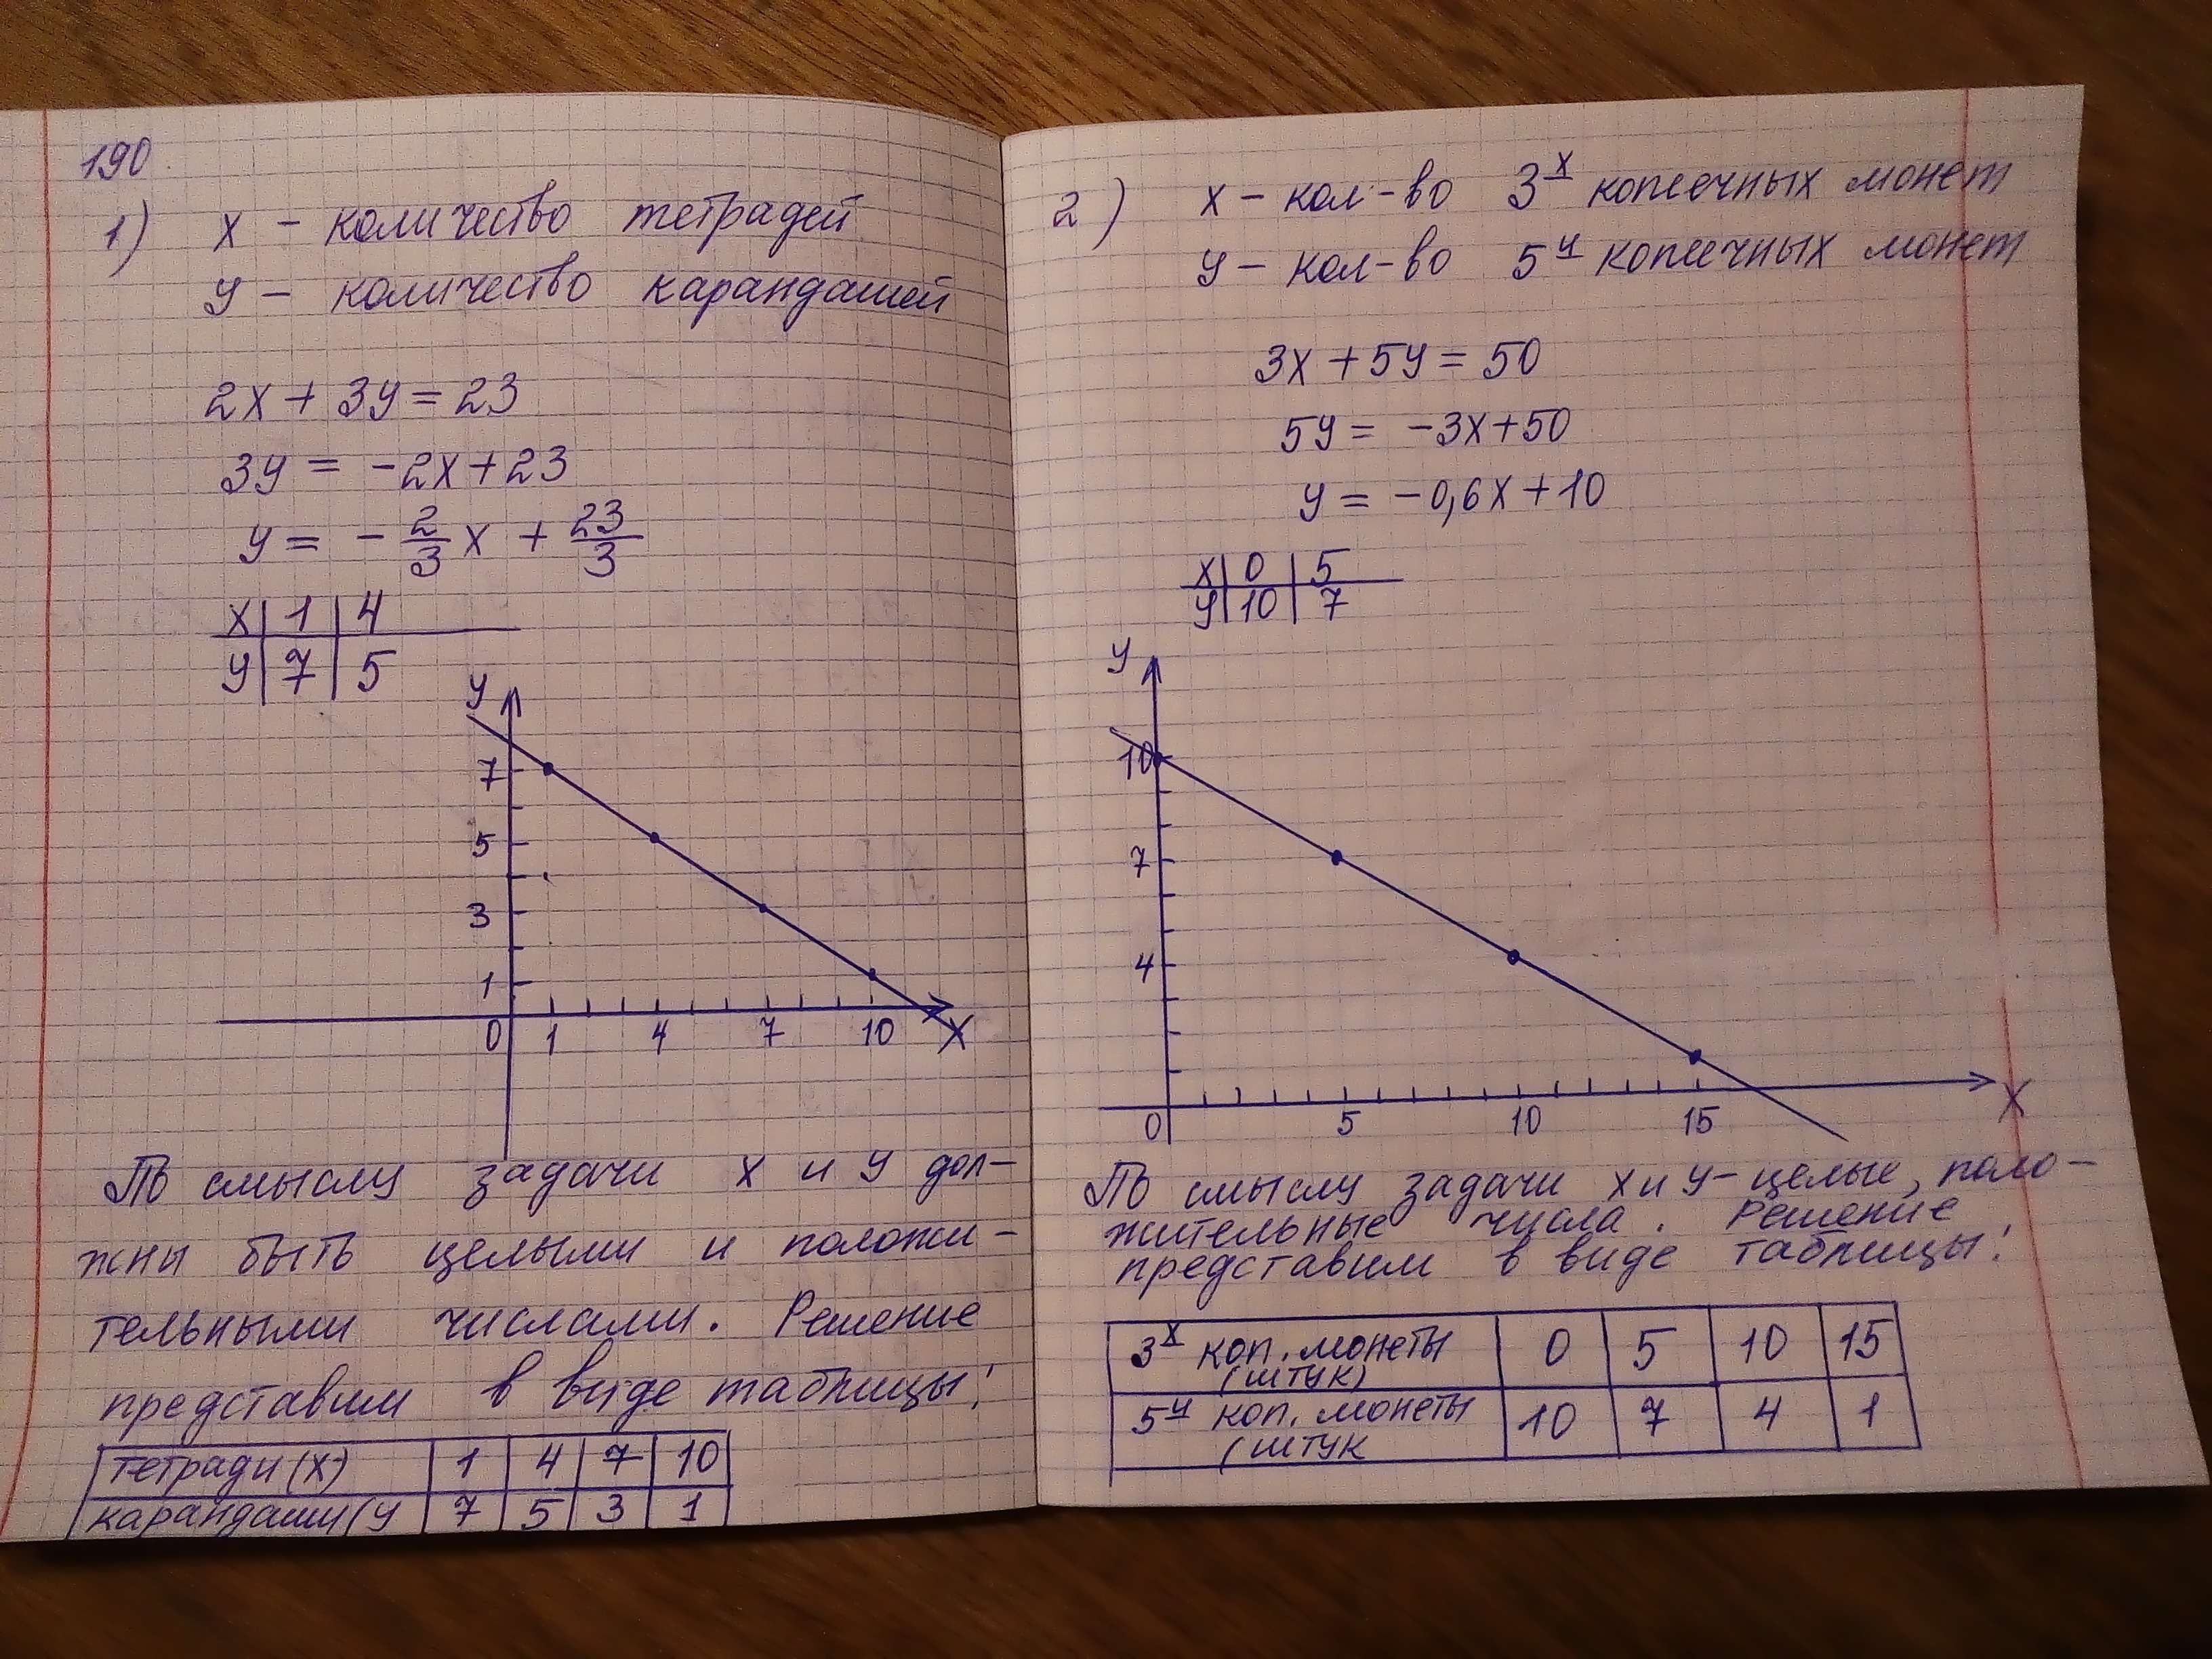 190
1) х – количество тетрадей
у – количество карандашей
2х + 3у = 23
3у = -2х + 23
у = - 2/3 х + 23/3
х | 1 | 4
у | 7 | 5
у
7
5
3
1
0 1 4 7 10 х
По смыслу задачи х и у дол-
жны быть целыми и положи-
тельными числами. Решение
представим в виде таблицы:
тетради (х) | 1 | 4 | 7 | 10
карандаши (у | 7 | 5 | 3 | 1
2) х – кол-во 3х копеечных монет
у – кол-во 5и копеечных монет
3х + 5у = 50
5у = -3х + 50
у = -0,6х + 10
х | 0 | 5
у | 10 | 7
у
10
7
4
0 5 10 15 х
По смыслу задачи х и у – целые, поло-
жительные числа. Решение
представим в виде таблицы:
3х коп. монеты (штук) | 0 | 5 | 10 | 15
5и коп. монеты (штук | 10 | 7 | 4 | 1